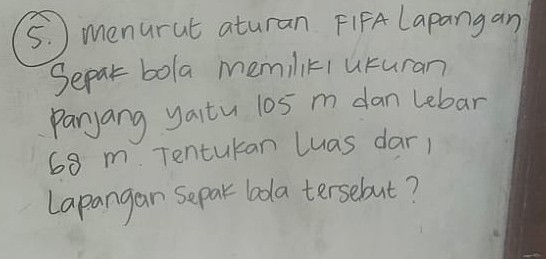 5. menurut aturan FIFA Lapangan
Sepak bola memiliki ukuran
panjang yaitu 105 m dan lebar
68 m. Tentukan luas dari
Lapangan sepak bola tersebut?